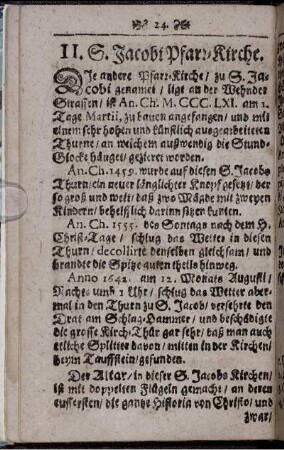 24.
II. S. Jacobi Pfarr-Kirche.
Die andere Pfarr-Kirche/ zu S. Ja-
cobi genannt/ ligt an der Wehnder
Strassen/ ist An. Ch. M. CCC. LXI. am 1.
Tage Martii, zu bauen angefangen/ und mit
einem sehr hohen und künstlich ausgearbeiteten
Thurne/ an welchem außwendig die Stund-
Glocke hänget/ gezieret worden.
An. Ch. 1459. wurde auf diesen S. Jacobs
Thurn/ ein neuer länglichter Knopf gesetzt/ der
so groß und weit/ daß zwo Mägde mit zweyen
Kindern/ behelfflich darinn sitzen kunten.
An. Ch. 1555. des Sontags nach dem H.
Christ-Tage/ schlug das Wetter in diesen
Thurn/ decollirte denselben gleichsam/ und
brandte die Spitze guten theils hinweg.
Anno 1642. am 12. Monats Augusti/
Nachts umb 1 Uhr/ schlug das Wetter aber-
mal in den Thurn zu S. Jacob/ versehrte den
Drat am Schlag-Hammer/ und beschädigte
die grosse Kirch-Thür gar sehr/ daß man auch
etliche Splitter davon/ mitten in der Kirchen/
beym Tauffstein/ gefunden.
Der Altar/ in dieser S. Jacobs Kirchen/
ist mit doppelten Flügeln gemacht/ an deren
eussersten/ die gantze Historia von Christo/ und
zwar/